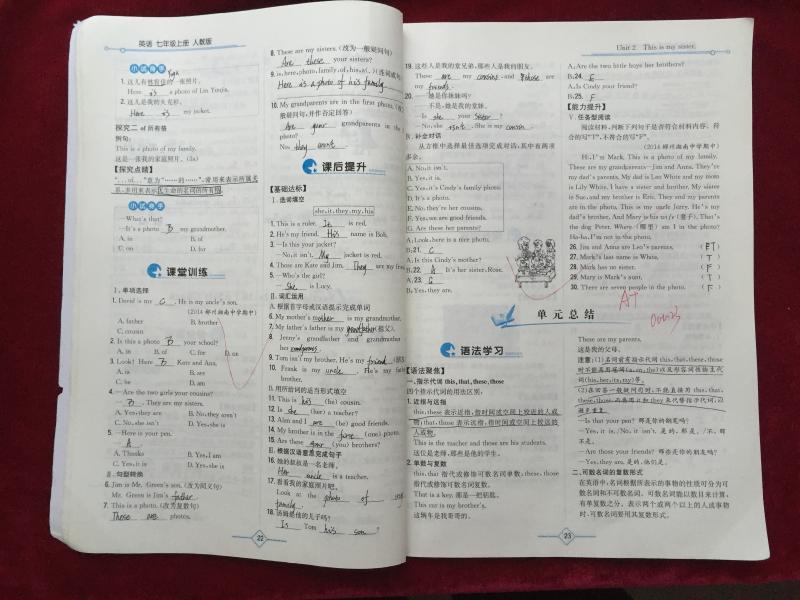 英语 七年级上册 人教版
小试身手
1. 这儿有林凯佳的一张照片。
Here is a photo of Lin Yunjia.
2. 这儿是我的夹克衫。
Here is my jacket.
探究二 of所有格
例句:
This is a photo of my family.
这是一张我的家庭照片。(3a)
【探究点睛】
小试身手
—What's that?
—It's a photo B my grandmother.
A. in B. of
C. on D. for
课堂训练
Ⅰ. 单项选择
1. David is my C. He is my uncle's son.
(2014郴州湘南中学期中)
A. father B. brother
C. cousin
2. Is this a photo B your school?
A. in B. of C. for D. on
3. Look! Here B Kate and Ann.
A. is B. are
C. be D. am
4. —Are the two girls your cousins?
— B. They are my sisters.
A. Yes, they are B. No, they aren't
C. No, she isn't D. Yes, she is
5. —Here is your pen.
— A.
A. Thanks B. Yes, I am
C. Yes, it is D. Yes, she is
Ⅱ. 句型转换
6. Jim is Mr. Green's son. (改为同义句)
Mr. Green is Jim's father.
7. This is a photo. (改为复数句)
These are photos.
8. These are my sisters. (改为一般疑问句)
Are these your sisters?
9. is, here, photo, family, of, his, a(.) (连词成句)
Here is a photo of his family.
10. My grandparents are in the first photo. (改为一
般疑问句,并作否定回答)
Are your grandparents in the first
photo?
No, they aren't.
课后提升
【基础达标】
Ⅰ. 选词填空
she, it, they, my, his
1. This is a ruler. It is red.
2. He's my friend. His name is Bob.
3. —Is this your jacket?
—No, it isn't. My jacket is red.
4. Those are Kate and Jim. They are my friends.
5. —Who's the girl?
— She is Lucy.
Ⅱ. 词汇运用
A. 根据首字母或汉语提示完成单词
6. My mother's mother is my grandmother.
7. My father's father is my grandfather (祖父).
8. Jenny's grandfather and grandmother are
her
9. Tom isn't my brother. He's my friend
10. Frank is my uncle. He's my father's
brother.
B. 用所给词的适当形式填空
11. This is his (he) cousin.
12. Is she (her) a teacher?
13. Alan and I are (be) good friends.
14. My brother is in the first (one) photo.
15. Are these your (you) brothers?
Ⅲ. 根据汉语意思完成句子
16. 她的叔叔是一名老师。
Her uncle is a teacher.
17. 看看我的家庭照片吧。
Look at the photo of my
family.
18. 汤姆是他的儿子吗?
Is Tom his son?
22
Unit 2 This is my sister.
19. 这些人是我的堂兄弟,那些人是我的朋友。
These are my cousins and those are
my friends.
20. —她是你妹妹吗?
—不是,她是我的堂妹。
—Is she your sister?
—No, she isn't. She is my cousin.
Ⅳ. 补全对话
从方框中选择最佳选项完成对话,其中有两项
多余。
A. No, it isn't.
B. Yes, it is.
C. Yes, it's Cindy's family photo.
D. It's a photo.
E. No, they're her cousins.
F. Yes, we are good friends.
G. Are these her parents?
A: Look, here is a nice photo.
B: 21. C
A: Is this Cindy's mother?
B: 22. A It's her sister, Rose.
A: 23. G
B: Yes, they are.
A: Are the two little boys her brothers?
B: 24. E
A: Is Cindy your friend?
B: 25. F
【能力提升】
Ⅴ. 任务型阅读
阅读材料,判断下列句子是否符合材料内容,符
合的写“T”,不符合的写“F”。
(2014郴州湘南中学期中)
Hi, I'm Mark. This is a photo of my family.
These are my grandparents—Jim and Anna. They're
my dad's parents. My dad is Leo White and my mom
is Lily White. I have a sister and brother. My sister
is Sue, and my brother is Eric. They and my parents
are in the photo. This is my uncle Jerry. He's my
dad's brother. And Mary is his wife (妻子). That's
the dog Peter. Where (哪里) am I in the photo?
Ha-ha, I'm not in the photo.
26. Jim and Anna are Leo's parents. ( T )
27. Mark's last name is White. ( T )
28. Mark has no sister. ( F )
29. Mary is Mark's aunt. ( T )
30. There are seven people in the photo. ( F )
A+
单元总结
语法学习
【语法聚焦】
一、指示代词 this, that, these, those
四个指示代词的用法区别:
1. 近指与远指
this, these表示近指,指时间或空间上较近的人或
物;that, those表示远指,指时间或空间上较远的
人或物。
This is the teacher and these are his students.
这位是老师,那些是他的学生。
2. 单数与复数
this, that指代或修饰可数名词单数;these, those
指代或修饰可数名词复数。
That is a key. 那是一把钥匙。
This car is my brother's.
这辆车是我哥哥的。
These are my parents.
这是我的父母。
注意:(1)名词前有指示代词this, that, these, those
时不能再用冠词(a, an, the)以及形容词性物主代
词(his, her, its, my)等。
(2)在回答一般疑问句时,不能直接用this, that,
these, those, 而要用it和they来代替指示代词,以
避免重复。
—Is that your pen? 那是你的钢笔吗?
—Yes, it is. /No, it isn't. 是的,那是。/不,那
不是。
—Are those your friends? 那些是你的朋友吗?
—Yes, they are. 是的,他们是。
二、可数名词的复数形式
在英语中,名词根据所表示的事物的性质可分为可
数名词和不可数名词。可数名词能以数目来计算,
有单复数之分。表示两个或两个以上的人或事物
时,可数名词要用其复数形式。
23